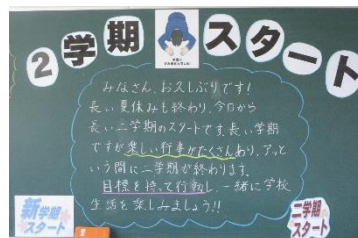 2学期スタート
みなさん、お久しぶりです!
長い夏休みも終わり、今日から
長い二学期のスタートです。長い学期
ですが楽しい行事がたくさんあり、アッと
いう間に二学期が終わります。
目標を持って行動し、一緒に学校
生活を楽しみましょう!!
新学期
スタート
二学期
スタート